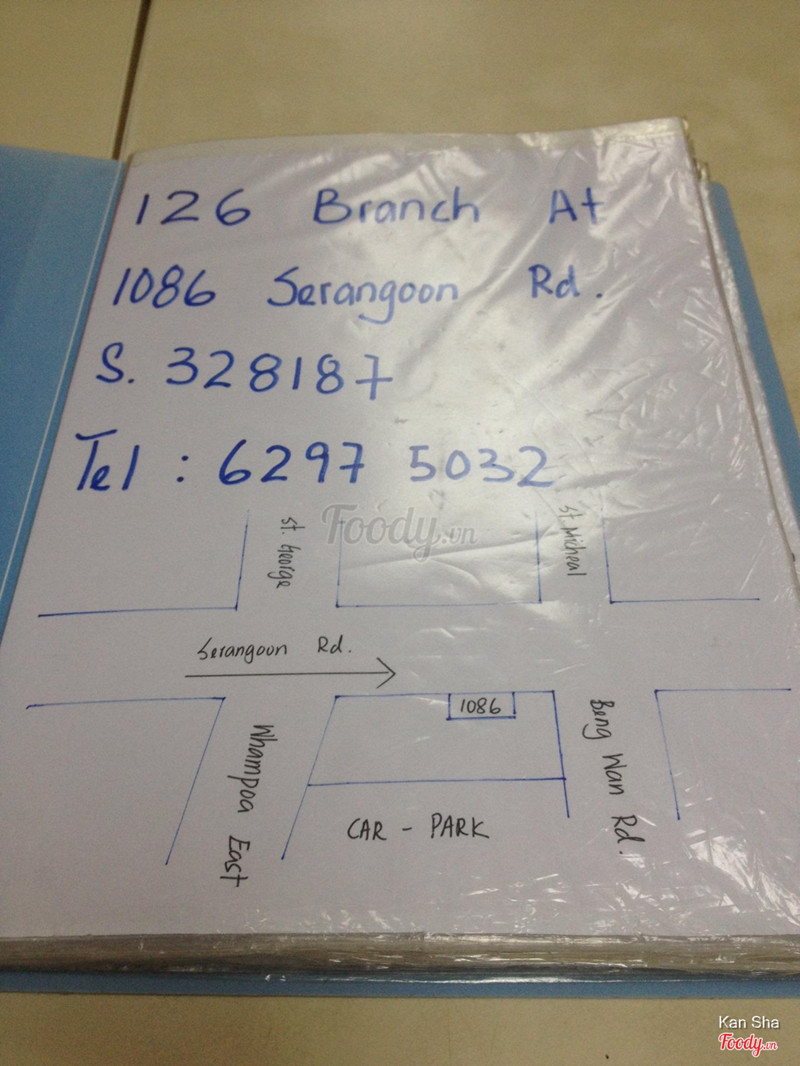 126 Branch At
1086 Serangoon Rd.
S. 328187
Tel : 6297 5032
Foody.vn
St. George
St. Micheal
Serangoon Rd.
1086
Whampoa East
Beng Wan Rd.
CAR - PARK
Kan Sha
Foody.vn